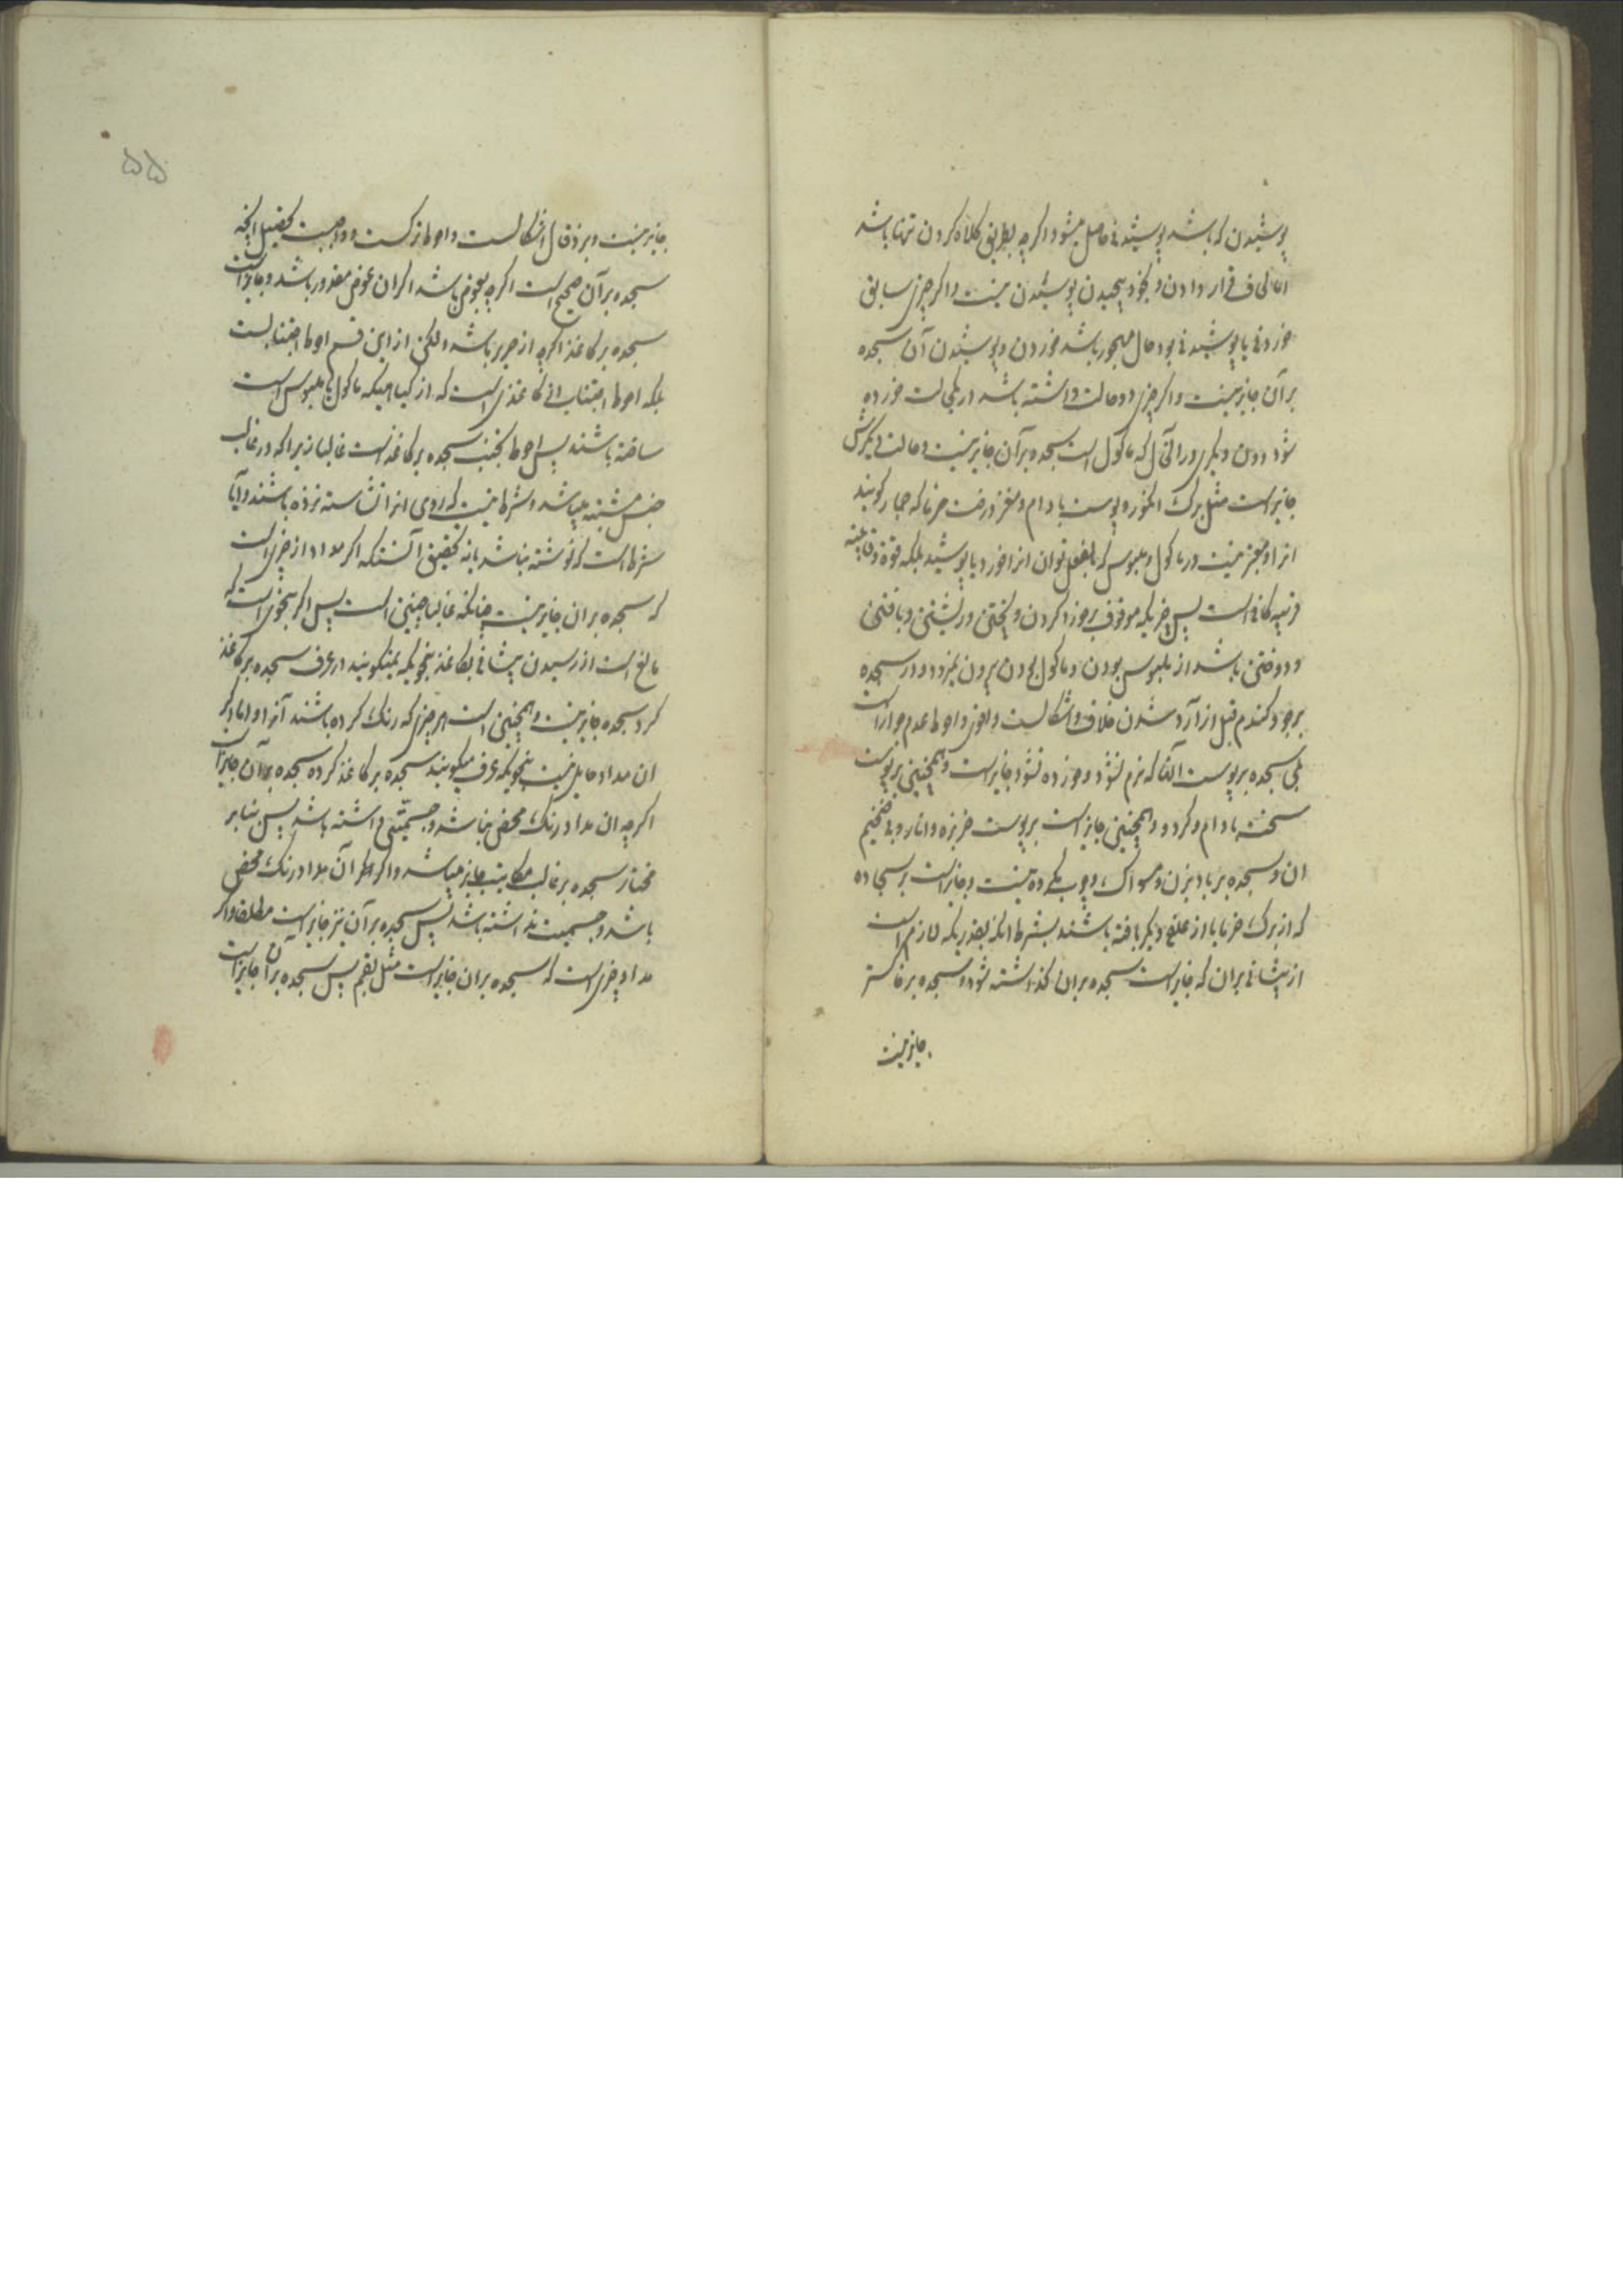 پوشیدن که باشد پوشیدنی حاصل میشود اکرچه بطریق کلاه کردن تنها باشد
اما لحاف قرار دادن و بخود پیچیدن پوشیدن نیست و اکر چیزی سابق
خوردنی یا پوشیدنی بود حال مهجور باشد خوردن و پوشیدن آن سجده
بر آن جایز نیست و اکر چیزی دو حالت داشته باشد در یکحالت خورده
شود دون دیکری در آنحال که ماکول است سجده بر آن جایز نیست و حالت دیکرش
جایز است مثل برک انکور و پوست بادام و مغز درخت خرما که جمار کویند
انرا و معتبر نیست در ماکول و ملبوس که بالفعل توان انرا خورد یا پوشید بلکه قوة
قریبه کافی است پس چیزیکه موقوف بر خورد کردن و پختن و رشتن و بافتن
و دوختن باشد از ملبوس بودن و ماکول بودن بیرون نمیرود و در سجده
بر جو و کندم قبل از آرد شدن خلاف و اشکالست و احوط عدم جواز است
بلی سجده بر پوست آنها که نرم نشود و خورده نشود جایز است و همچنین بر پوست
سخت بادام و کردو و همچنین جایز است بر پوست خربزه و انار و بر تخم
ان و سجده بر بادبزن و مسواک و چوب کرده نیست و جایز است بر سجاده
که از برک خرما یا از علف دیکر بافته باشند بشرط انکه بقدریکه لازم است
از پیشانی بر ان که جایز است سجده بر ان کذاشته شود و سجده بر خاکستر
جایز نیست
۵۵
جایز نیست و بر ذقال اشکالست و احوط ترکست و واجب نیست تحصیل انچه
سجده بر آن صحیح است اکرچه بعوض باشد اکر ان عوض مقدور باشد و جایز است
سجده بر کاغذ اکرچه از حریر باشد ولکن از این قسم احوط اجتنابست
بلکه احوط اجتناب از کاغذی است که از کیاهیکه ماکول یا ملبوس است
ساخته باشند پس احوط تجنب سجده بر کاغذ است غالبا زیرا که در غالب
جنس مشتبه میباشد و شرط نیست که روی انرا نشاسته نزده باشند و آیا
شرط است که نوشته نباشد یا نه تحقیق آنستکه اکر مداد از چیزی است
که سجده بر ان جایز نیست چنانکه غالبا چنین است پس اکر بنحوی است که
مانع است از رسیدن پیشانی بکاغذ بنحویکه نمیکویند در عرف سجده بر کاغذ
کرد سجده جایز نیست و همچنین است هر چیزی که رنک کرده باشند آنرا و اما اکر
ان مداد حایل نیست بنحویکه عرف میکویند سجده بر کاغذ کرده سجده بر آن جایز است
اکرچه ان مداد رنک محض نباشد و جسمیتی داشته باشد پس بنابر
مختار سجده بر غالب مکاتیب جایز میباشد و اکر اثر آن مداد رنک محض
باشد و جسمیت نداشته باشد پس سجده بر آن نیز جایز است مطلقا و اکر
مداد چیزی است که سجده بر ان جایز است مثل بقم پس سجده بر آن جایز است